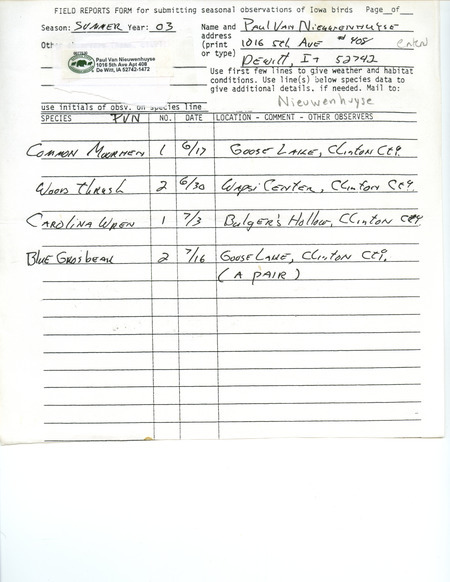 FIELD REPORTS FORM for submitting seasonal observations of Iowa birds Page__of__
Season: SUMMER Year: 03 Name and PAUL VAN NIEUWENHUYSE
address 1016 5th AVE #408
(print
or type) DEWITT, IA 52742
Paul Van Nieuwenhuyse
1016 5th Ave Apt 408
De Witt, IA 52742-1472
Use first few lines to give weather and habitat
conditions. Use line(s) below species data to
give additional details. if needed. Mail to:
Nieuwenhuyse
use initials of obsv. on species line
SPECIES PVN NO. DATE LOCATION - COMMENT - OTHER OBSERVERS
COMMON MOORHEN 1 6/17 GOOSE LAKE, CLINTON CTY.
WOOD THRUSH 2 6/30 WAPSI CENTER, CLINTON CTY.
CAROLINA WREN 1 7/3 BULGER'S HOLLOW, CLINTON CTY
BLUE GROSBEAK 2 7/16 GOOSE LAKE, CLINTON CTY.
(A PAIR)